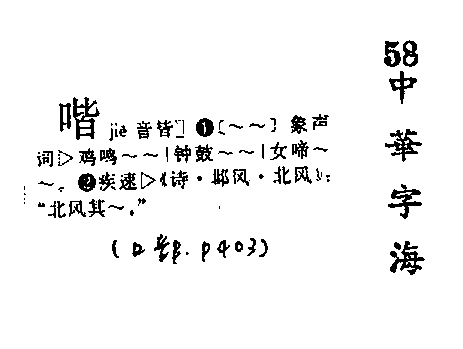 58
中華字海
喈 jiē 音皆] ❶〔～～〕象声
词▷鸡鸣～～|钟鼓～～|女啼～
～。❷疾速▷《诗·邶风·北风》：
“北风其～。”
(口部.P403)